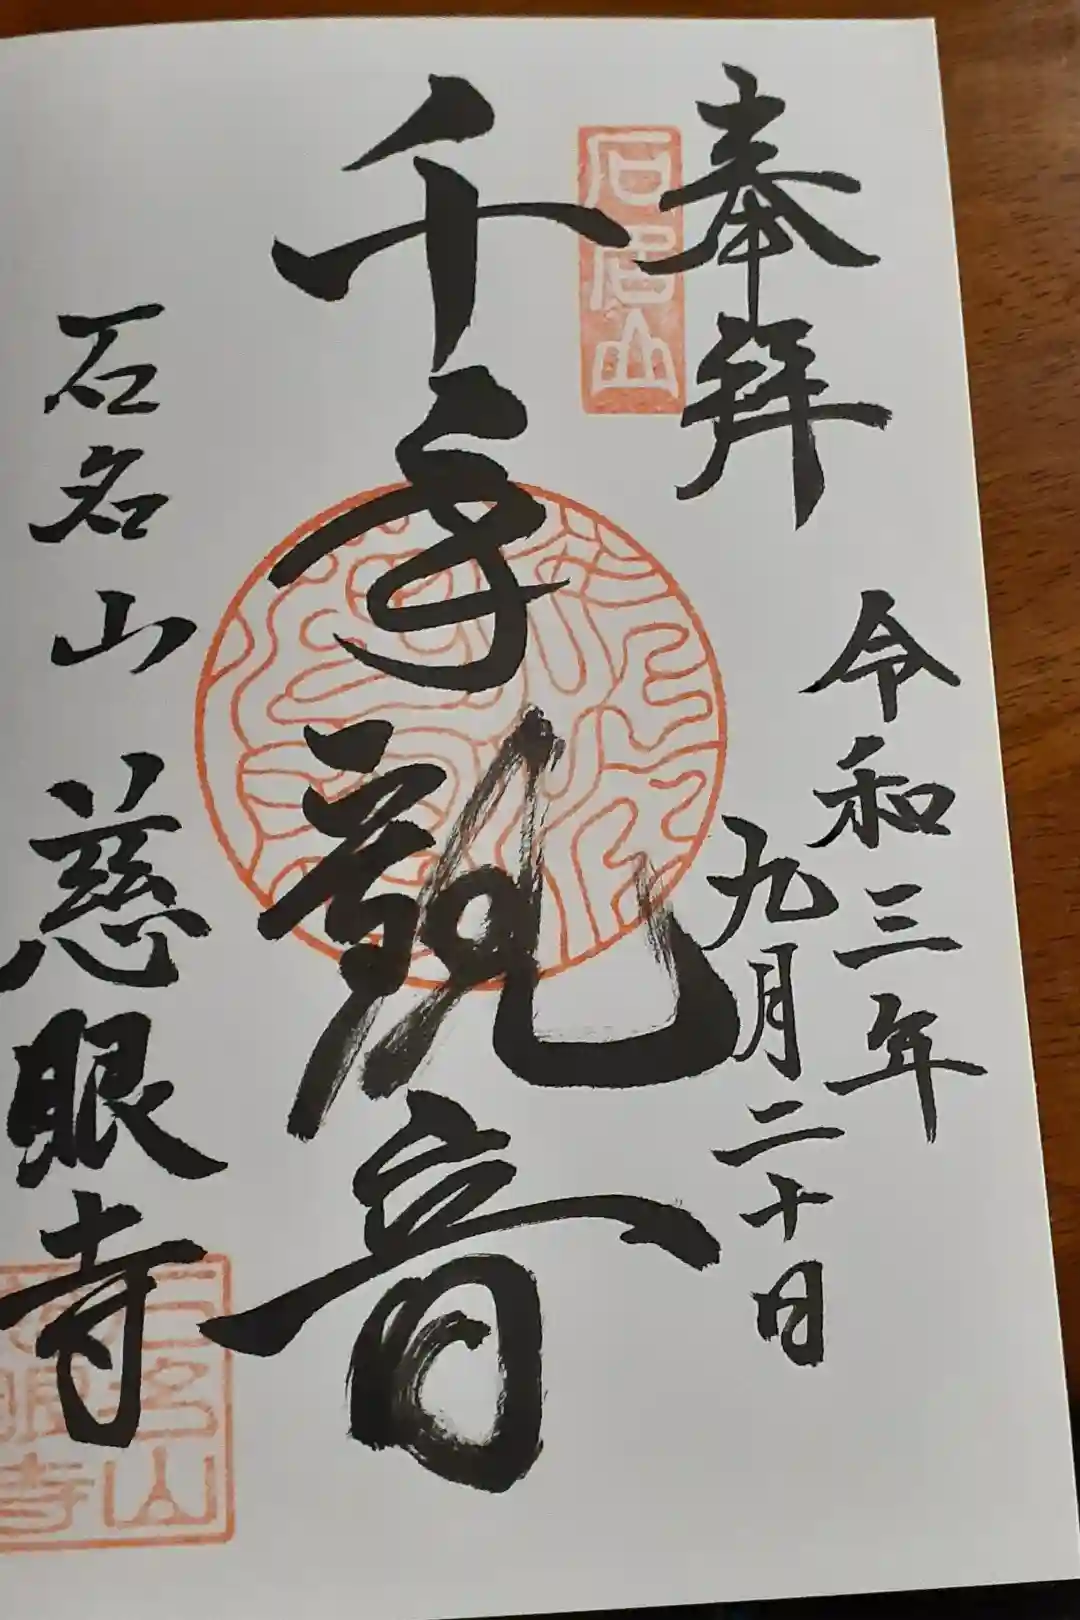 奉拜
令和三年
九月二十日
石名山
千手観音
石名山 慈眼寺
石名山
慈眼寺